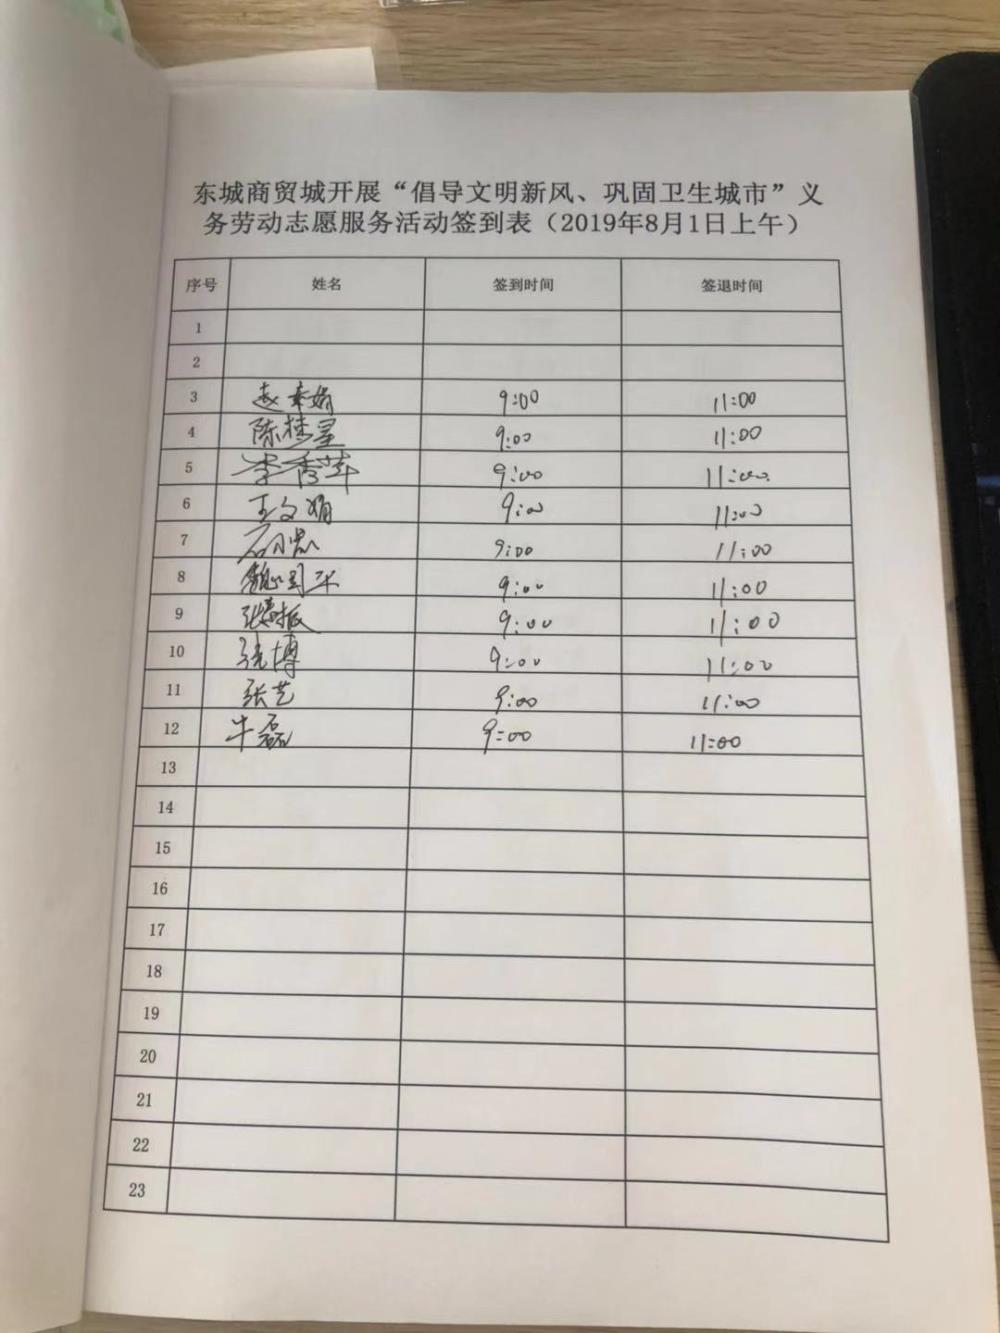 东城商贸城开展“倡导文明新风、巩固卫生城市”义
务劳动志愿服务活动签到表（2019年8月1日上午）
序号 姓名 签到时间 签退时间
1
2
3 赵素娟 9:00 11:00
4 陈梦星 9:00 11:00
5 李秀萍 9:00 11:00
6 王文娟 9:00 11:00
7 9:00 11:00
8 9:00 11:00
9 9:00 11:00
10 张博 9:00 11:00
11 张艺 9:00 11:00
12 牛磊 9:00 11:00
13
14
15
16
17
18
19
20
21
22
23